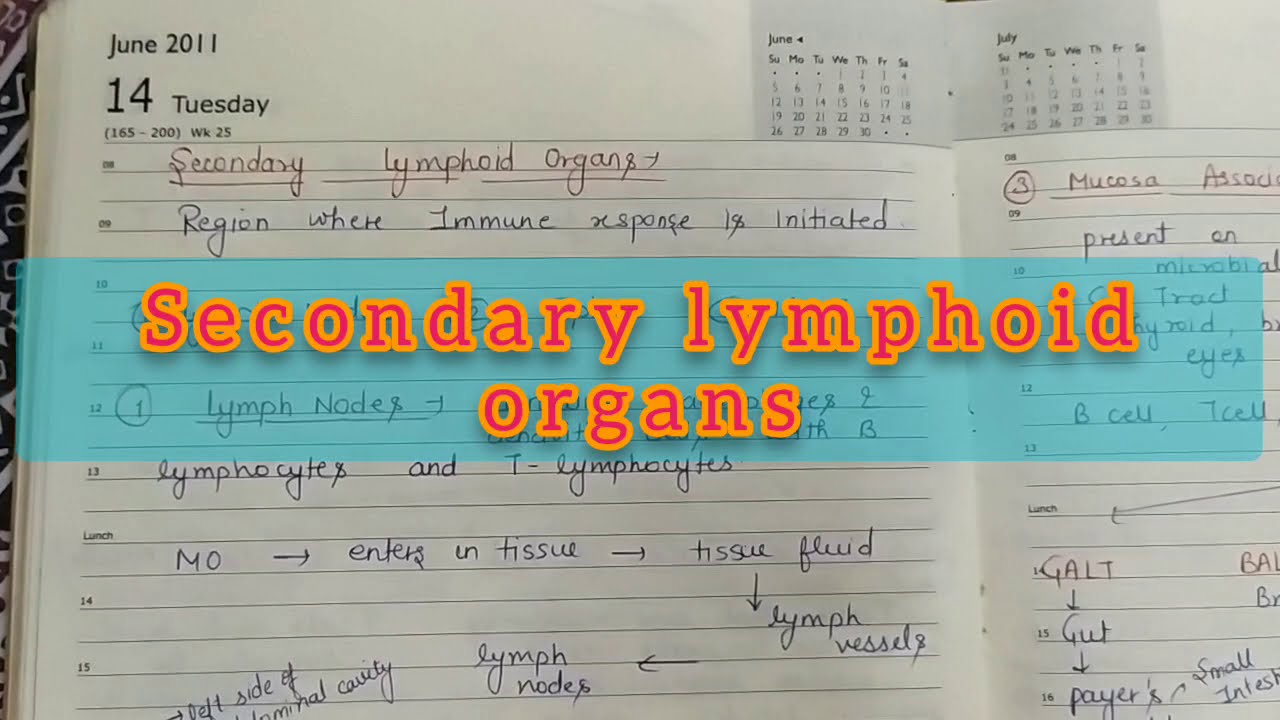 June 2011
14 Tuesday
(165 - 200) Wk 25
June
Su Mo Tu We Th Fr Sa
1 2 3 4
5 6 7 8 9 10 11
12 13 14 15 16 17 18
19 20 21 22 23 24 25
26 27 28 29 30
08 Secondary Lymphoid Organs →
09 Region where Immune response is initiated.
10
Secondary lymphoid
organs
11
12 ① Lymph Nodes →
13 lymphocytes and T-lymphocytes.
Lunch
MO → enters in tissue → tissue fluid
↓
14
lymph
vessels
15
lymph ←
nodes
left side of
cavity
July
Su Mo Tu We Th Fr Sa
1 2
3 4 5 6 7 8 9
10 11 12 13 14 15 16
17 18 19 20 21 22 23
24 25 26 27 28 29 30
08
③ Mucosa Associ
09
present on
10 microbial
Tract
eyes
12
B cell, T cell,
13
Lunch
GALT BAL
↓ Br
15 Gut
↓
16 payer's
Small
Intest